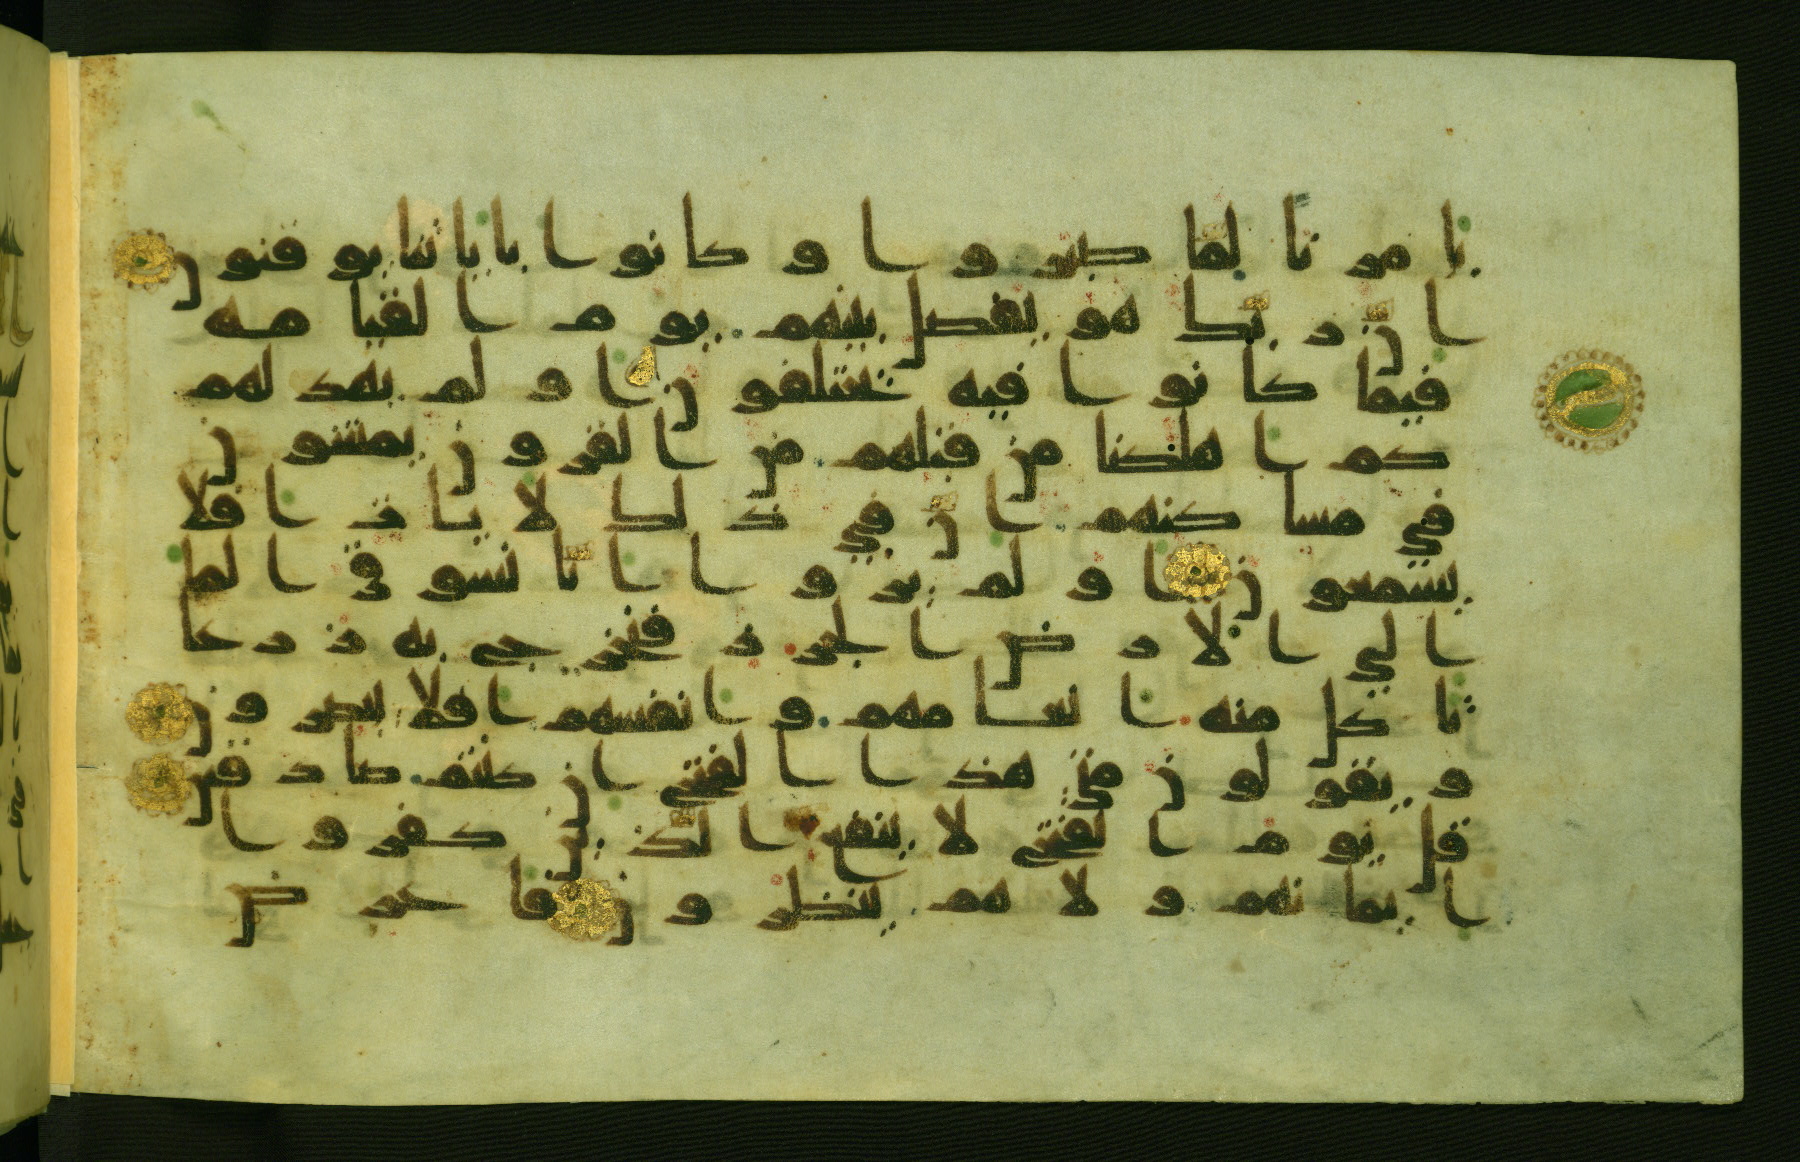 بامرنا لما صبروا وكانوا باياتنا يوقنون
ان ربك هو يفصل بينهم يوم القيامة
فيما كانوا فيه يختلفون اولم يهد لهم
كم اهلكنا من قبلهم من القرون يمشون
في مساكنهم ان في ذلك لايات افلا
يسمعون اولم يروا انا نسوق الما
الى الارض الجرز فنخرج به زرعا
تاكل منه انعامهم وانفسهم افلا يبصرون
ويقولون متى هذا الفتح ان كنتم صادقين
قل يوم الفتح لا ينفع الذين كفروا
ايمانهم ولا هم ينظرون فاعرض